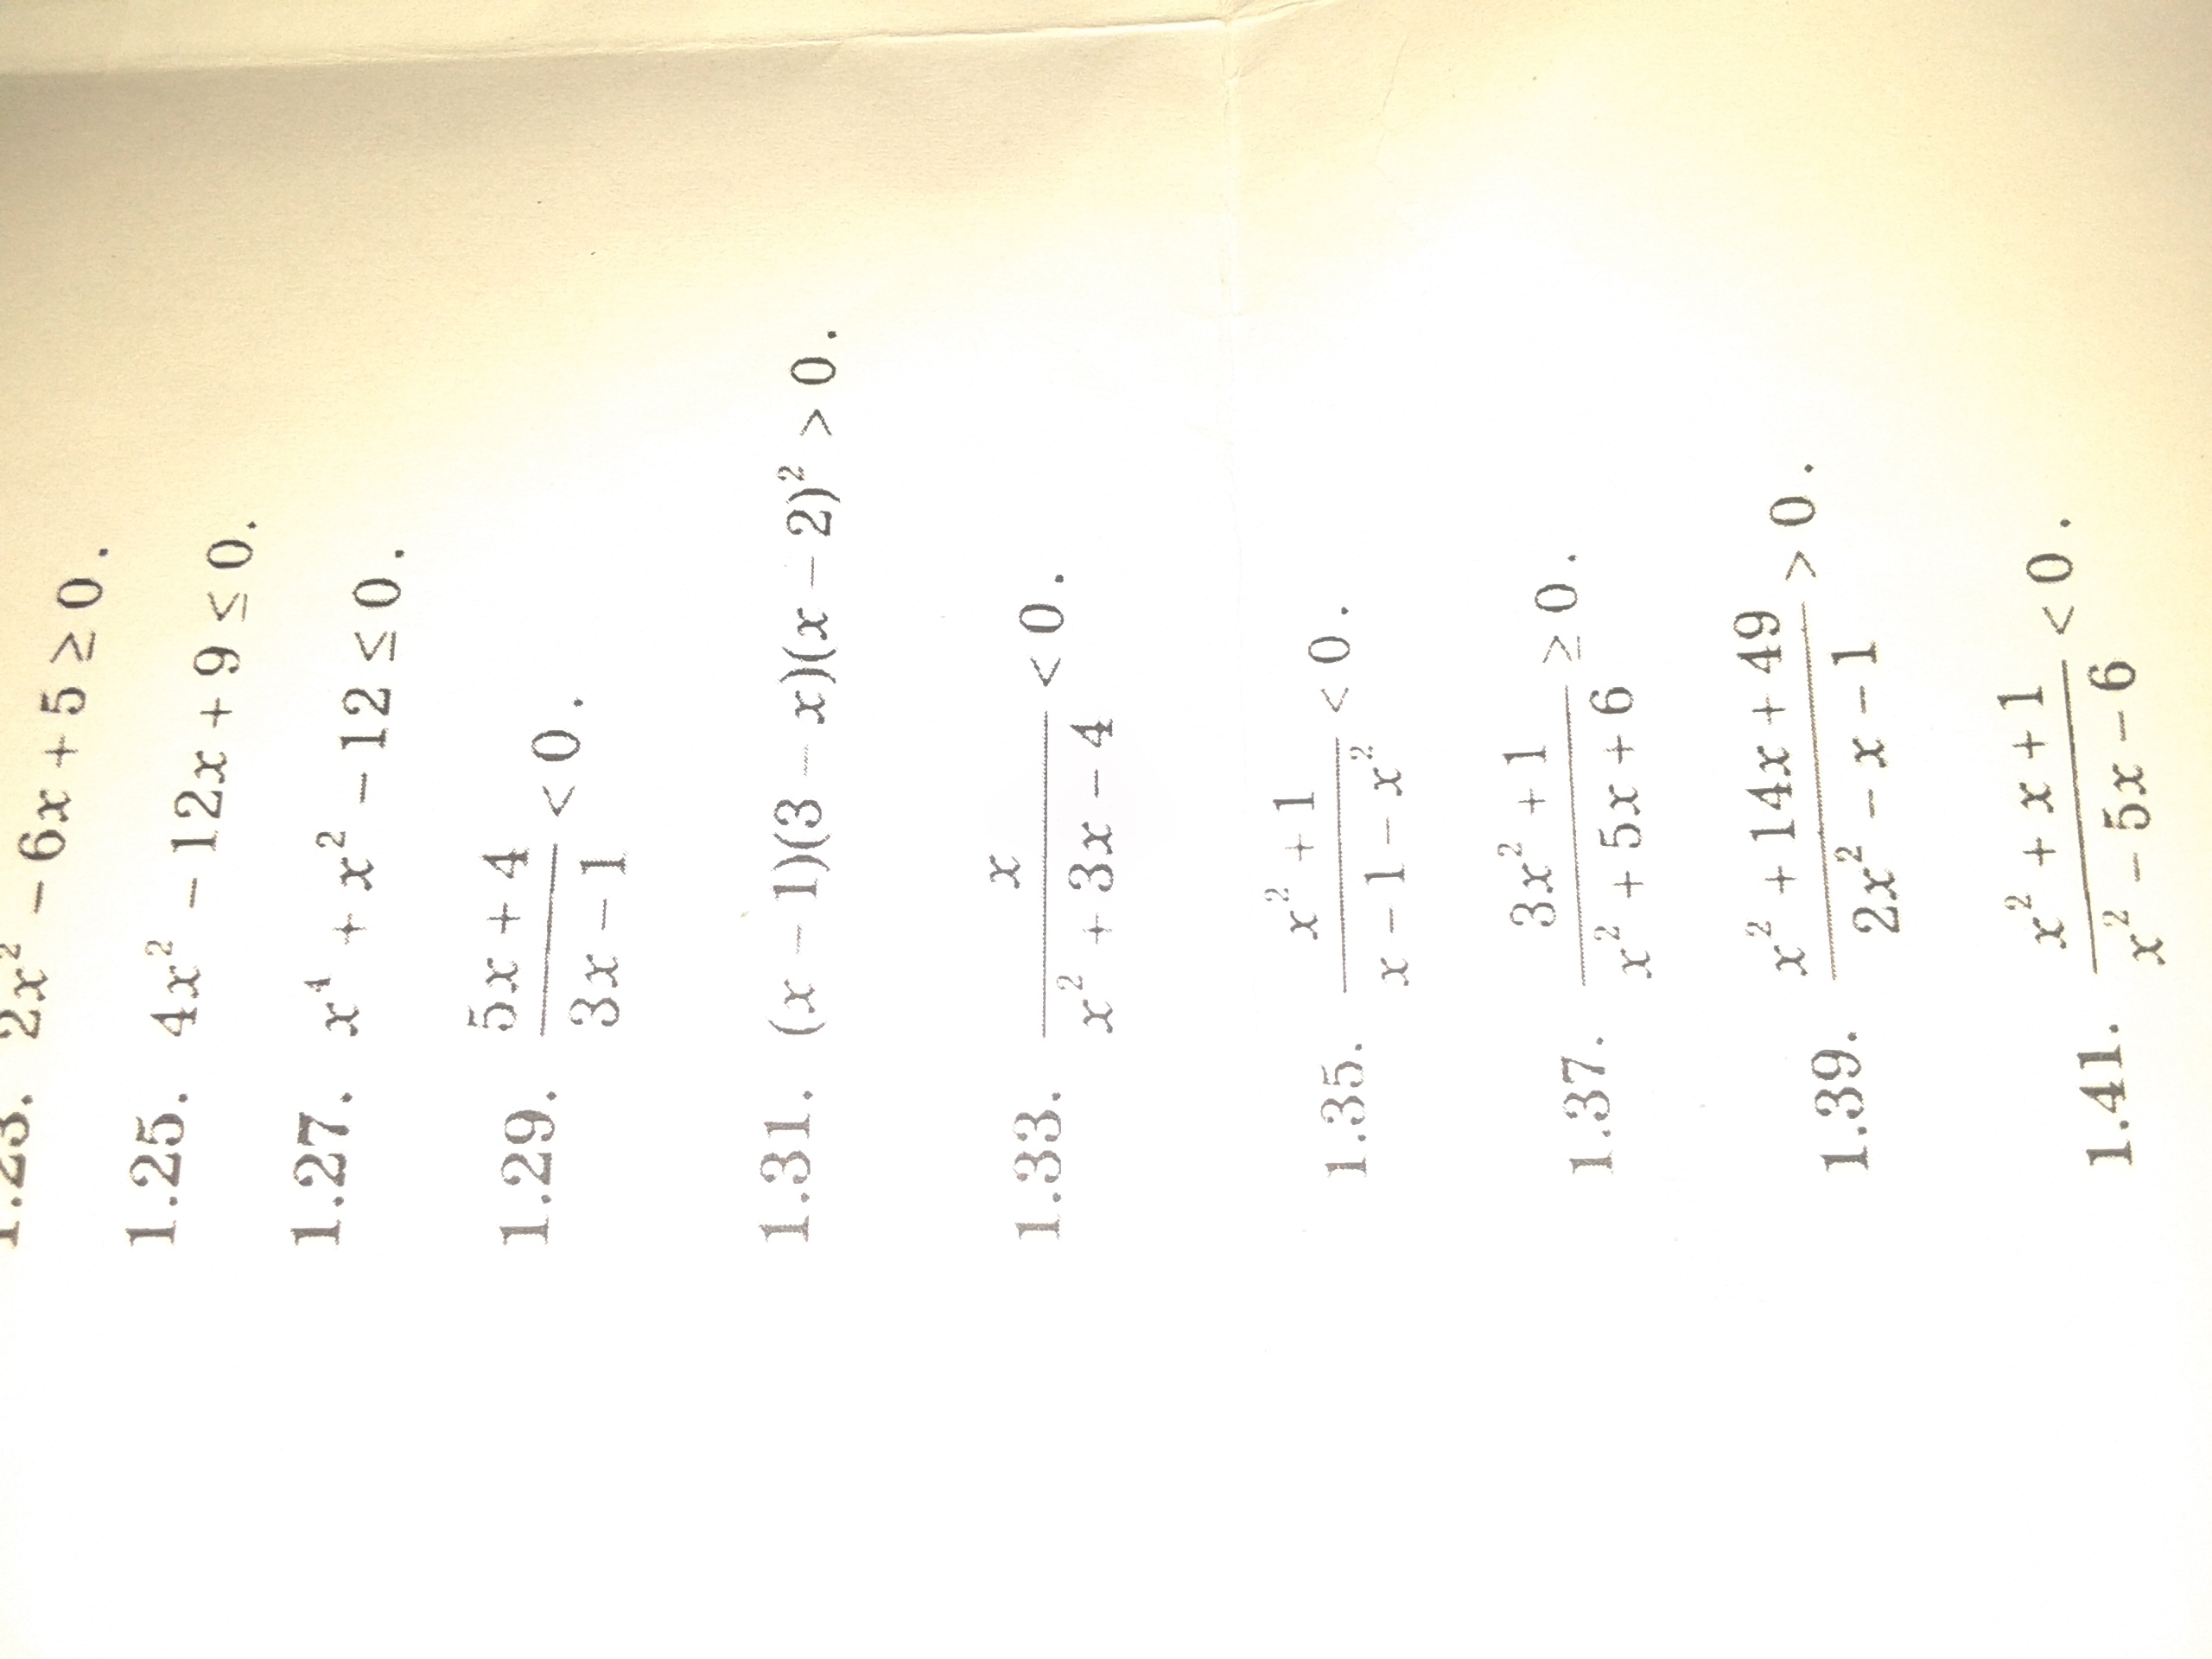 1.23. 2x² − 6x + 5 ≥ 0.
1.25. 4x² − 12x + 9 ≤ 0.
1.27. x⁴ + x² − 12 ≤ 0.
1.29. (5x + 4)/(3x − 1) < 0.
1.31. (x − 1)(3 − x)(x − 2)² > 0.
1.33. x/(x² + 3x − 4) < 0.
1.35. (x² + 1)/(x − 1 − x²) < 0.
1.37. (3x² + 1)/(x² + 5x + 6) ≥ 0.
1.39. (x² + 14x + 49)/(2x² − x − 1) > 0.
1.41. (x² + x + 1)/(x² − 5x − 6) < 0.